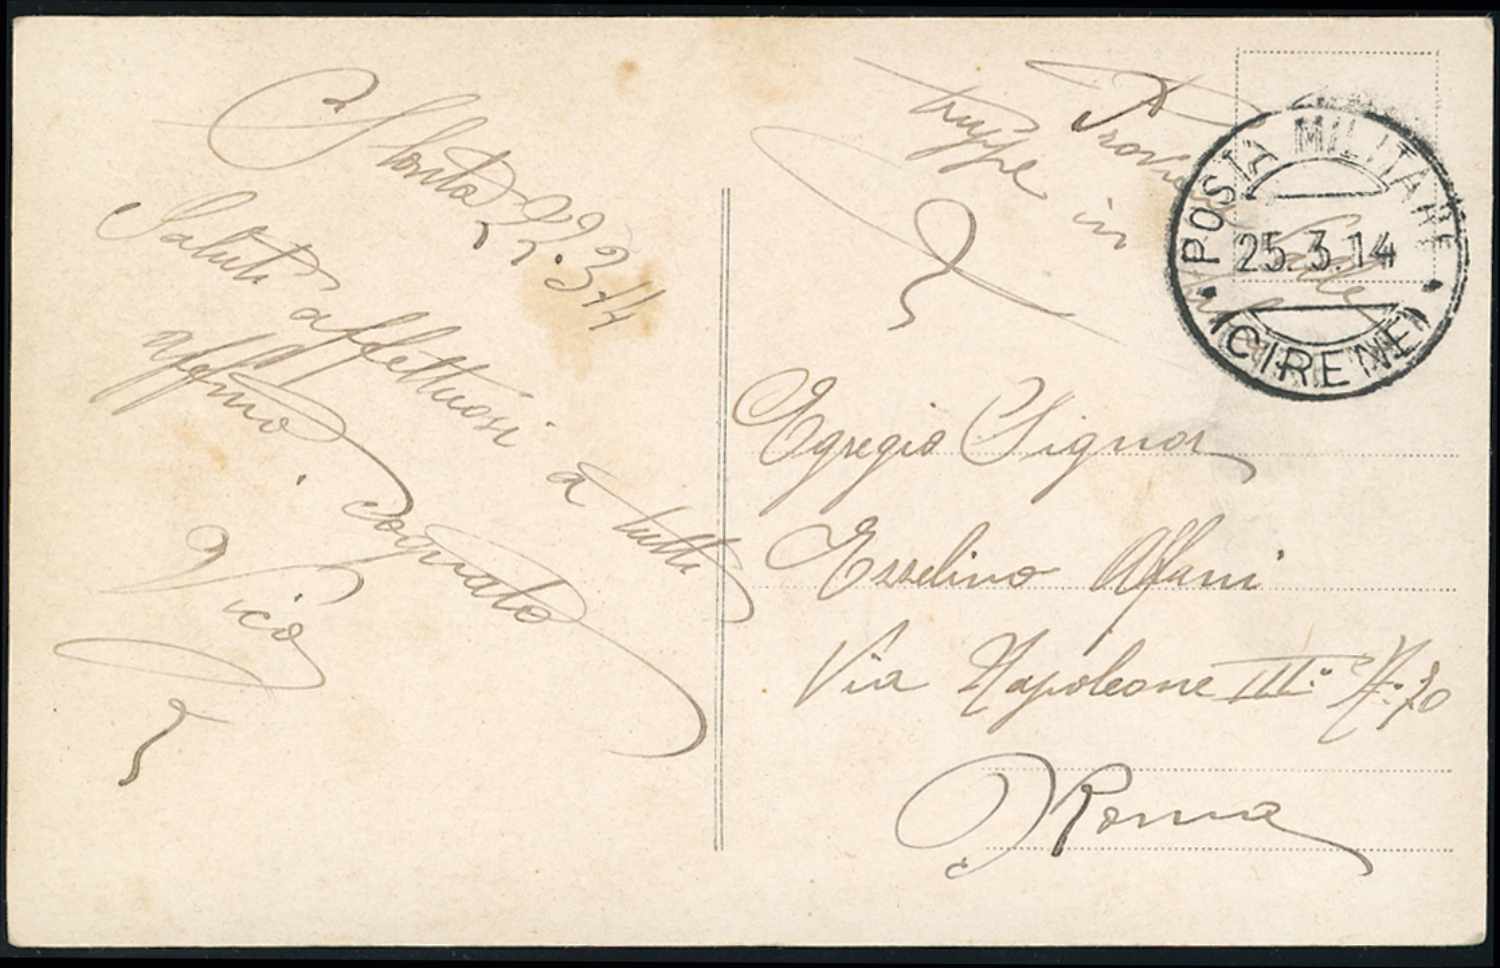 Slonta 22.3.14
Saluti affettuosi a tutti
Aff.mo cognato
Vico
truppe in
POSTA MILITARE
25.3.14
CIRENE
Egregio Signor
Ezzelino Alfani
Via Napoleone III° N° 70
Roma